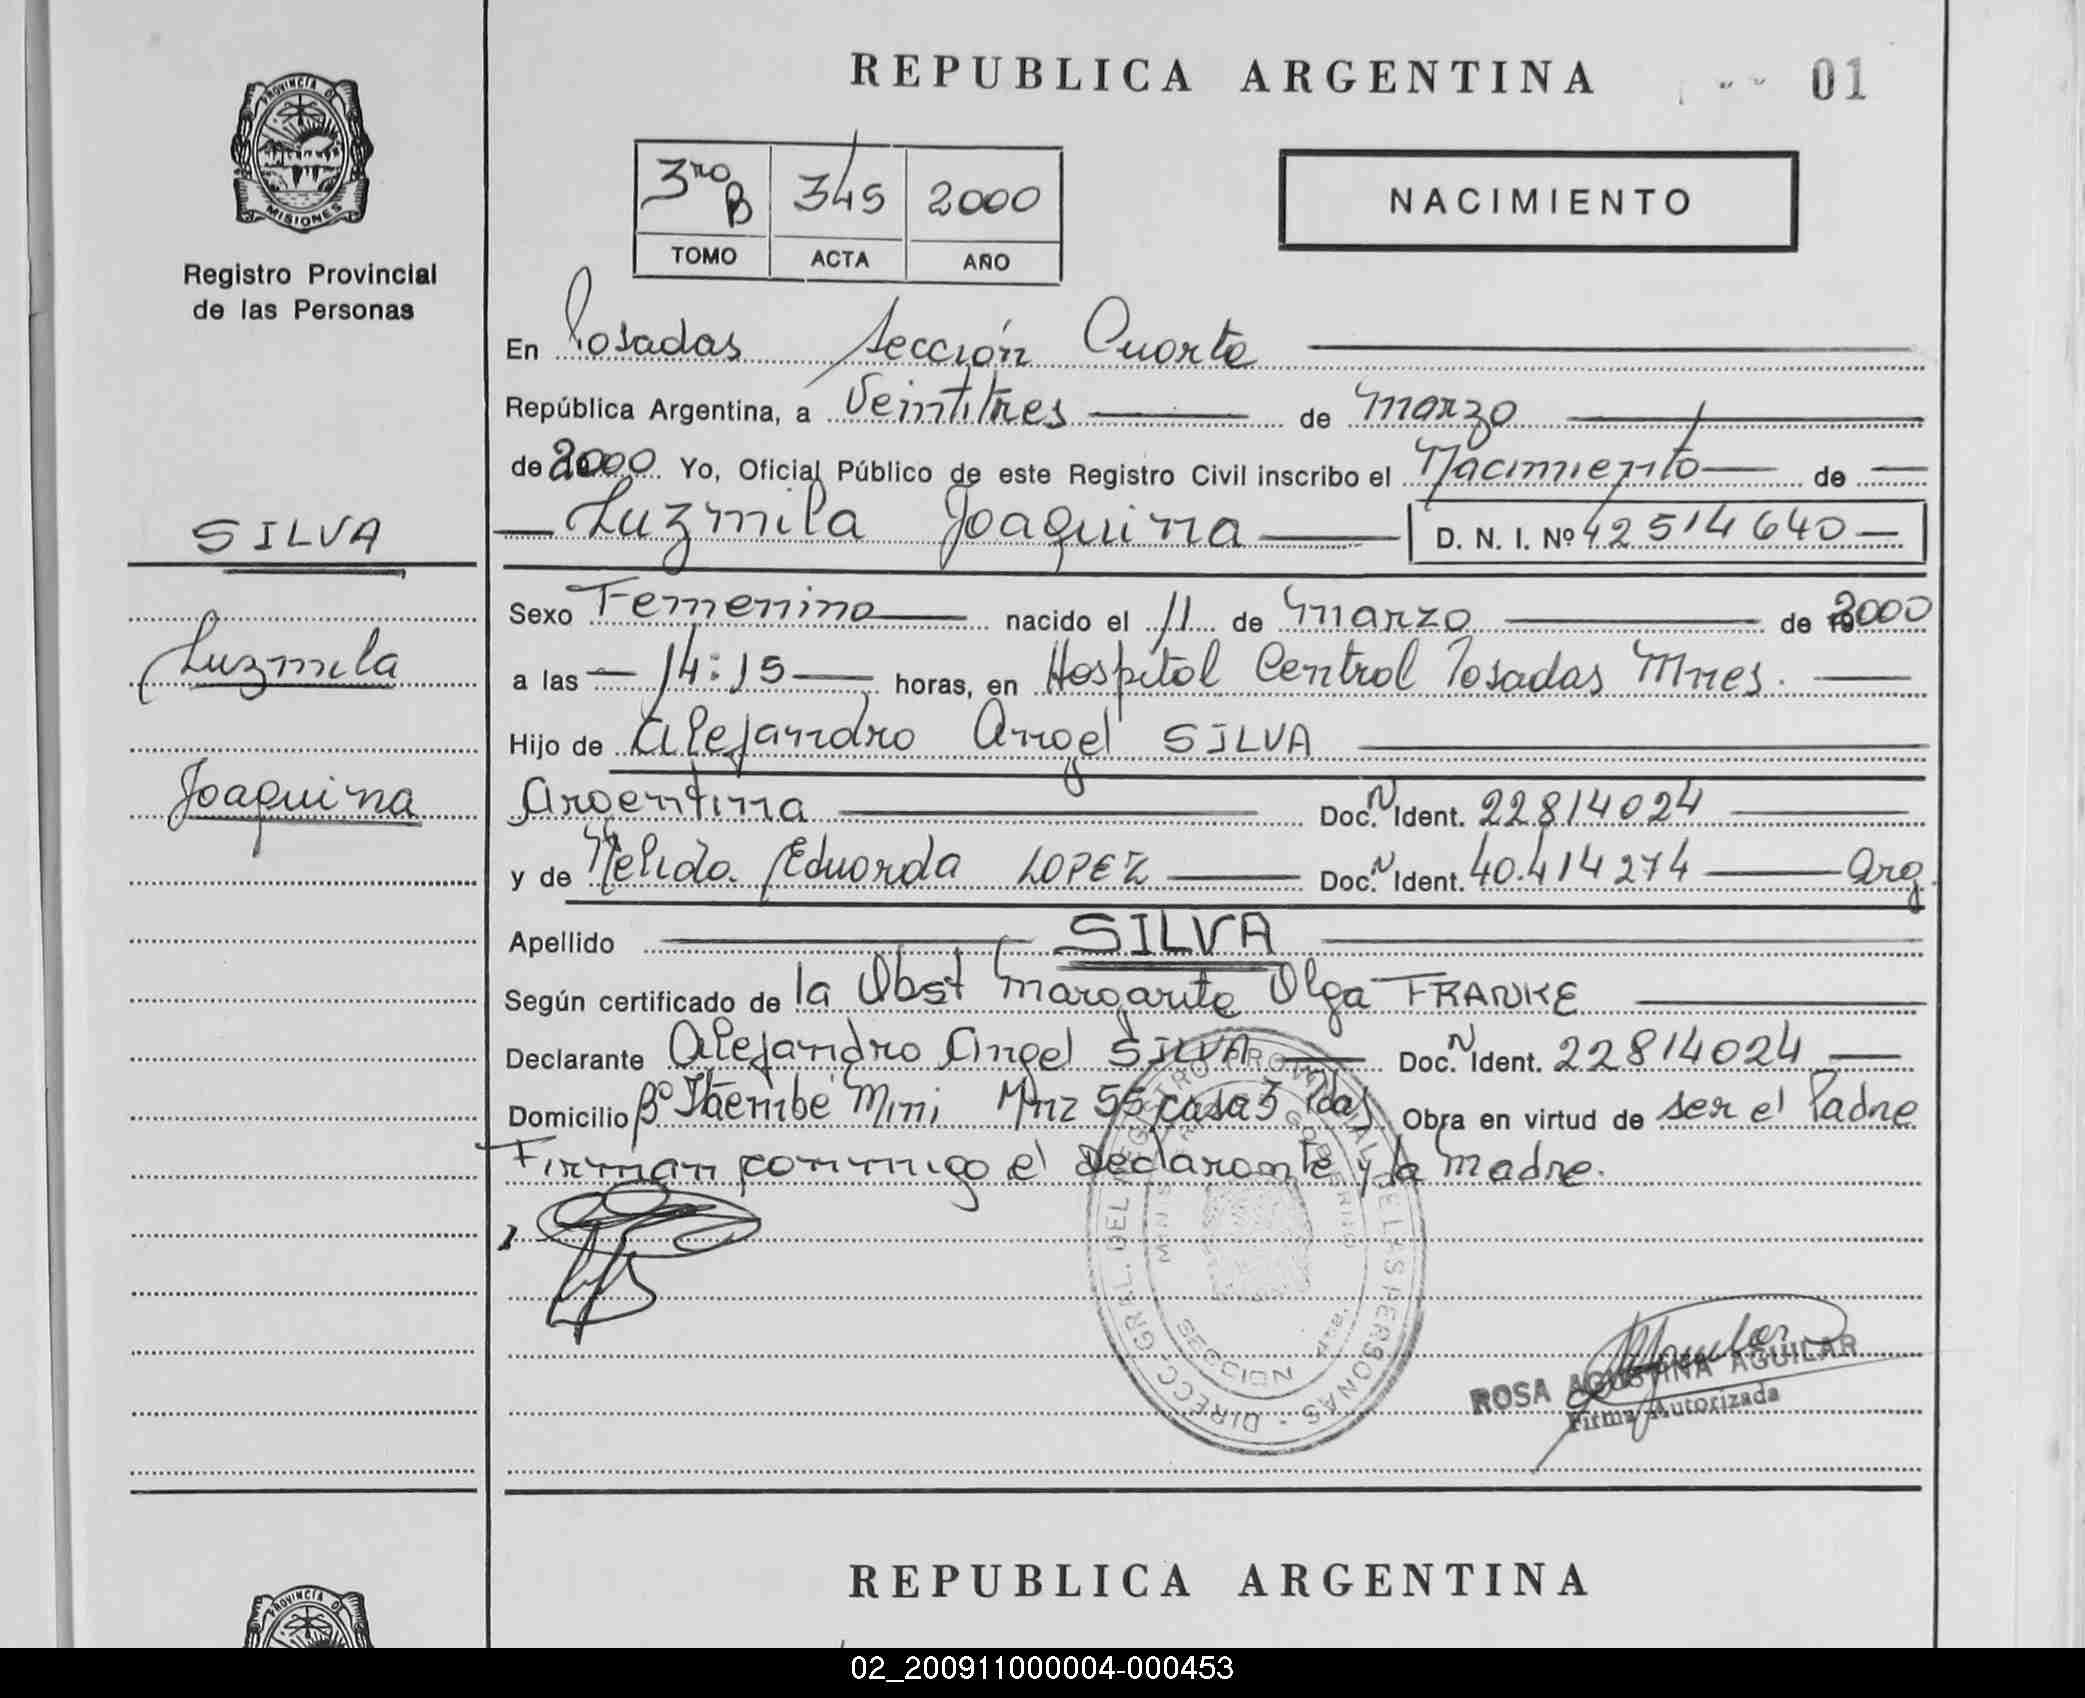 REPUBLICA ARGENTINA
01
PROVINCIA DE
MISIONES
Registro Provincial
de las Personas
3ro B 345 2000
TOMO ACTA AÑO
NACIMIENTO
En Posadas Sección Cuarta
República Argentina, a Veintitres de Marzo
de 2000 Yo, Oficial Público de este Registro Civil inscribo el Nacimiento de
Luzmila Joaquina D. N. I. Nº 42514640
SILVA
Luzmila
Joaquina
Sexo Femenino nacido el 11 de Marzo de 2000
a las 14:15 horas, en Hospital Central Posadas Mnes.
Hijo de Alejandro Angel SILVA
Argentina Doc. N Ident. 22814024
y de Nelida Eduarda LOPEZ Doc. N Ident. 40.414274 Arg.
Apellido SILVA
Según certificado de la Obst Margarita Olga FRANKE
Declarante Alejandro Angel SILVA Doc. N Ident. 22814024
Domicilio Bº Itaembé Mini Mnz 55 casa 3 Pdas Obra en virtud de ser el Padre
Firman conmigo el declarante y la madre.
DIRECC. GRAL. DEL REGISTRO PROVINCIAL DE LAS PERSONAS
GOBIERNO
SECCION
ROSA AGUSTINA AGUILAR
Firma Autorizada
REPUBLICA ARGENTINA
PROVINCIA DE
02_200911000004-000453